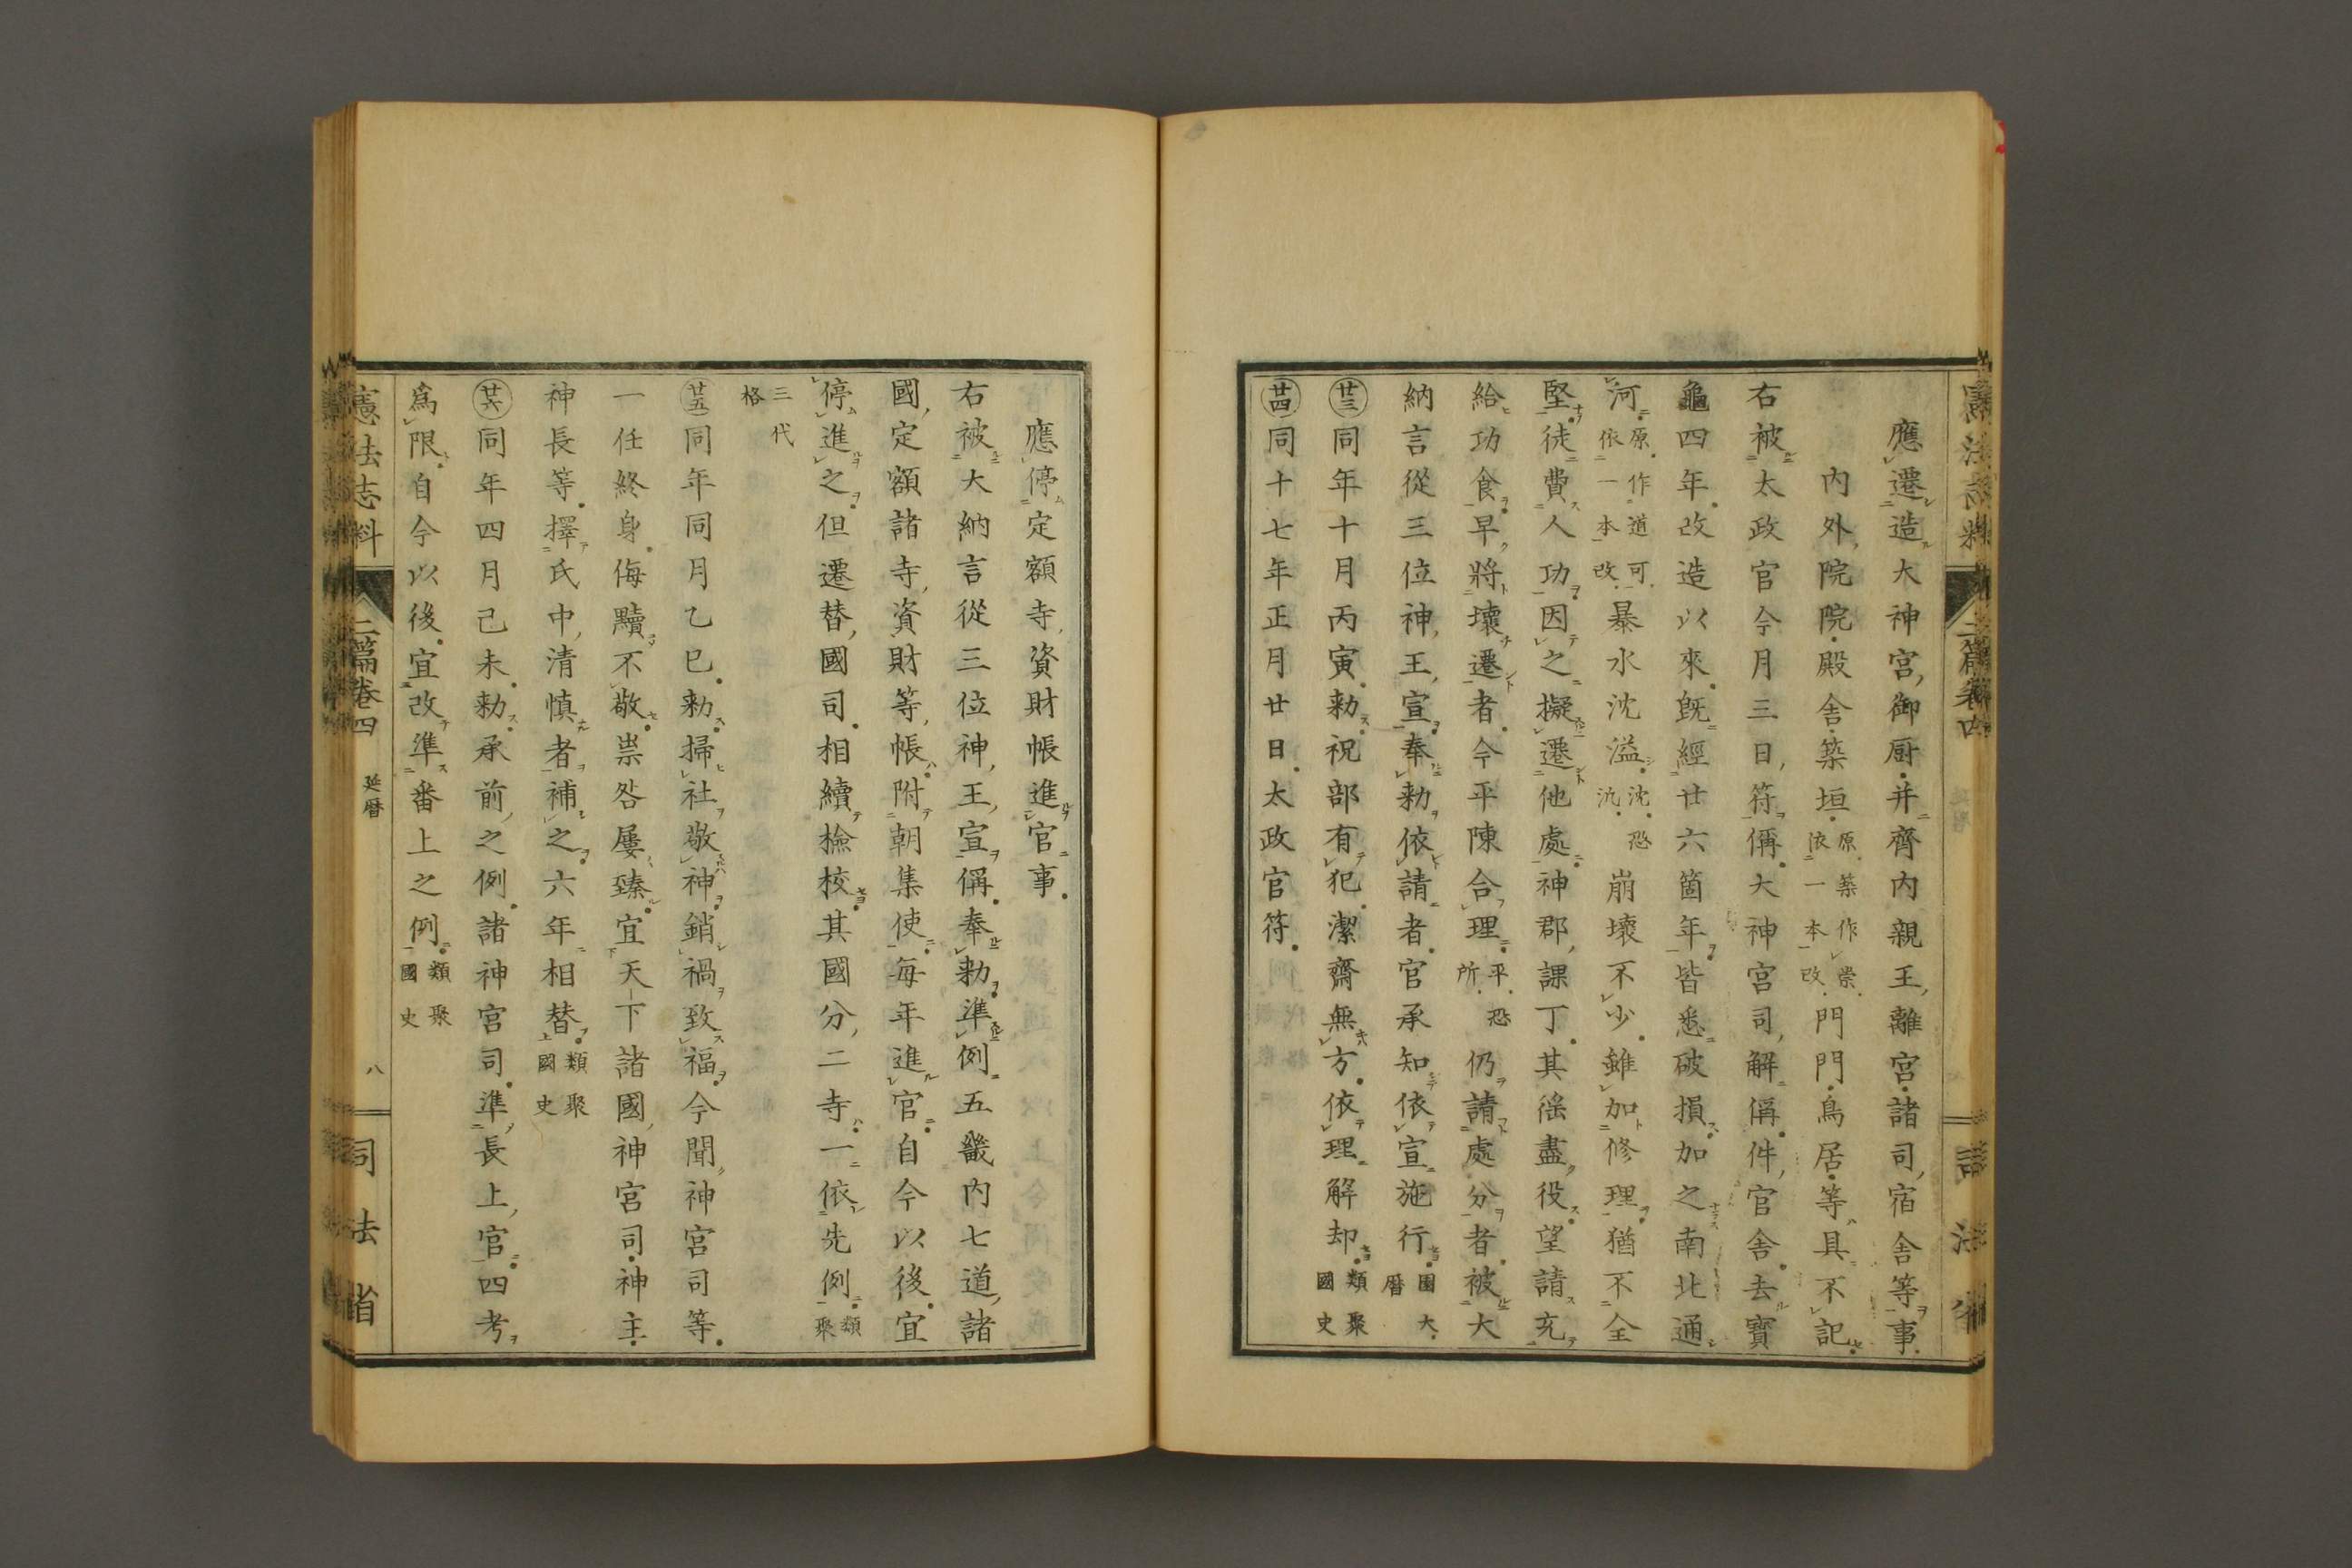 應遷造大神宮御厨并齊內親王離宮諸司宿舍等事
內外院院殿舍築垣原築作禜依一本改門門鳥居等具不記
右被太政官今月三日符偁大神宮司解偁件官舍去寶
龜四年改造以來既經廿六箇年皆悉破損加之南北通
河原作道可依一本改暴水沈溢沈恐氿崩壞不少雖加修理猶不全
堅徒費人功因之擬遷他處神郡課丁其徭盡役望請充
給功食早將壞遷者今平陳合理平恐所仍請處分者被大
納言從三位神王宣奉勅依請者官承知依宣施行國大曆
廿三同年十月丙寅勅祝部有犯潔齋無方依理解却類聚國史
廿四同十七年正月廿日太政官符
應停定額寺資財帳進官事
右被大納言從三位神王宣偁奉勅準例五畿內七道諸
國定額諸寺資財等帳附朝集使每年進官自今以後宜
停進之但遷替國司相續撿校其國分二寺一依先例類聚
三代格
廿五同年同月乙巳勅掃社敬神銷禍致福今聞神宮司等
一任終身侮黷不敬祟咎屢臻宜天下諸國神宮司神主
神長等擇氏中清慎者補之六年相替類聚國史
廿六同年四月己未勅承前之例諸神宮司準長上官四考
爲限自今以後宜改準番上之例類聚國史
憲法志料 二篇卷四 延曆 八 司法省